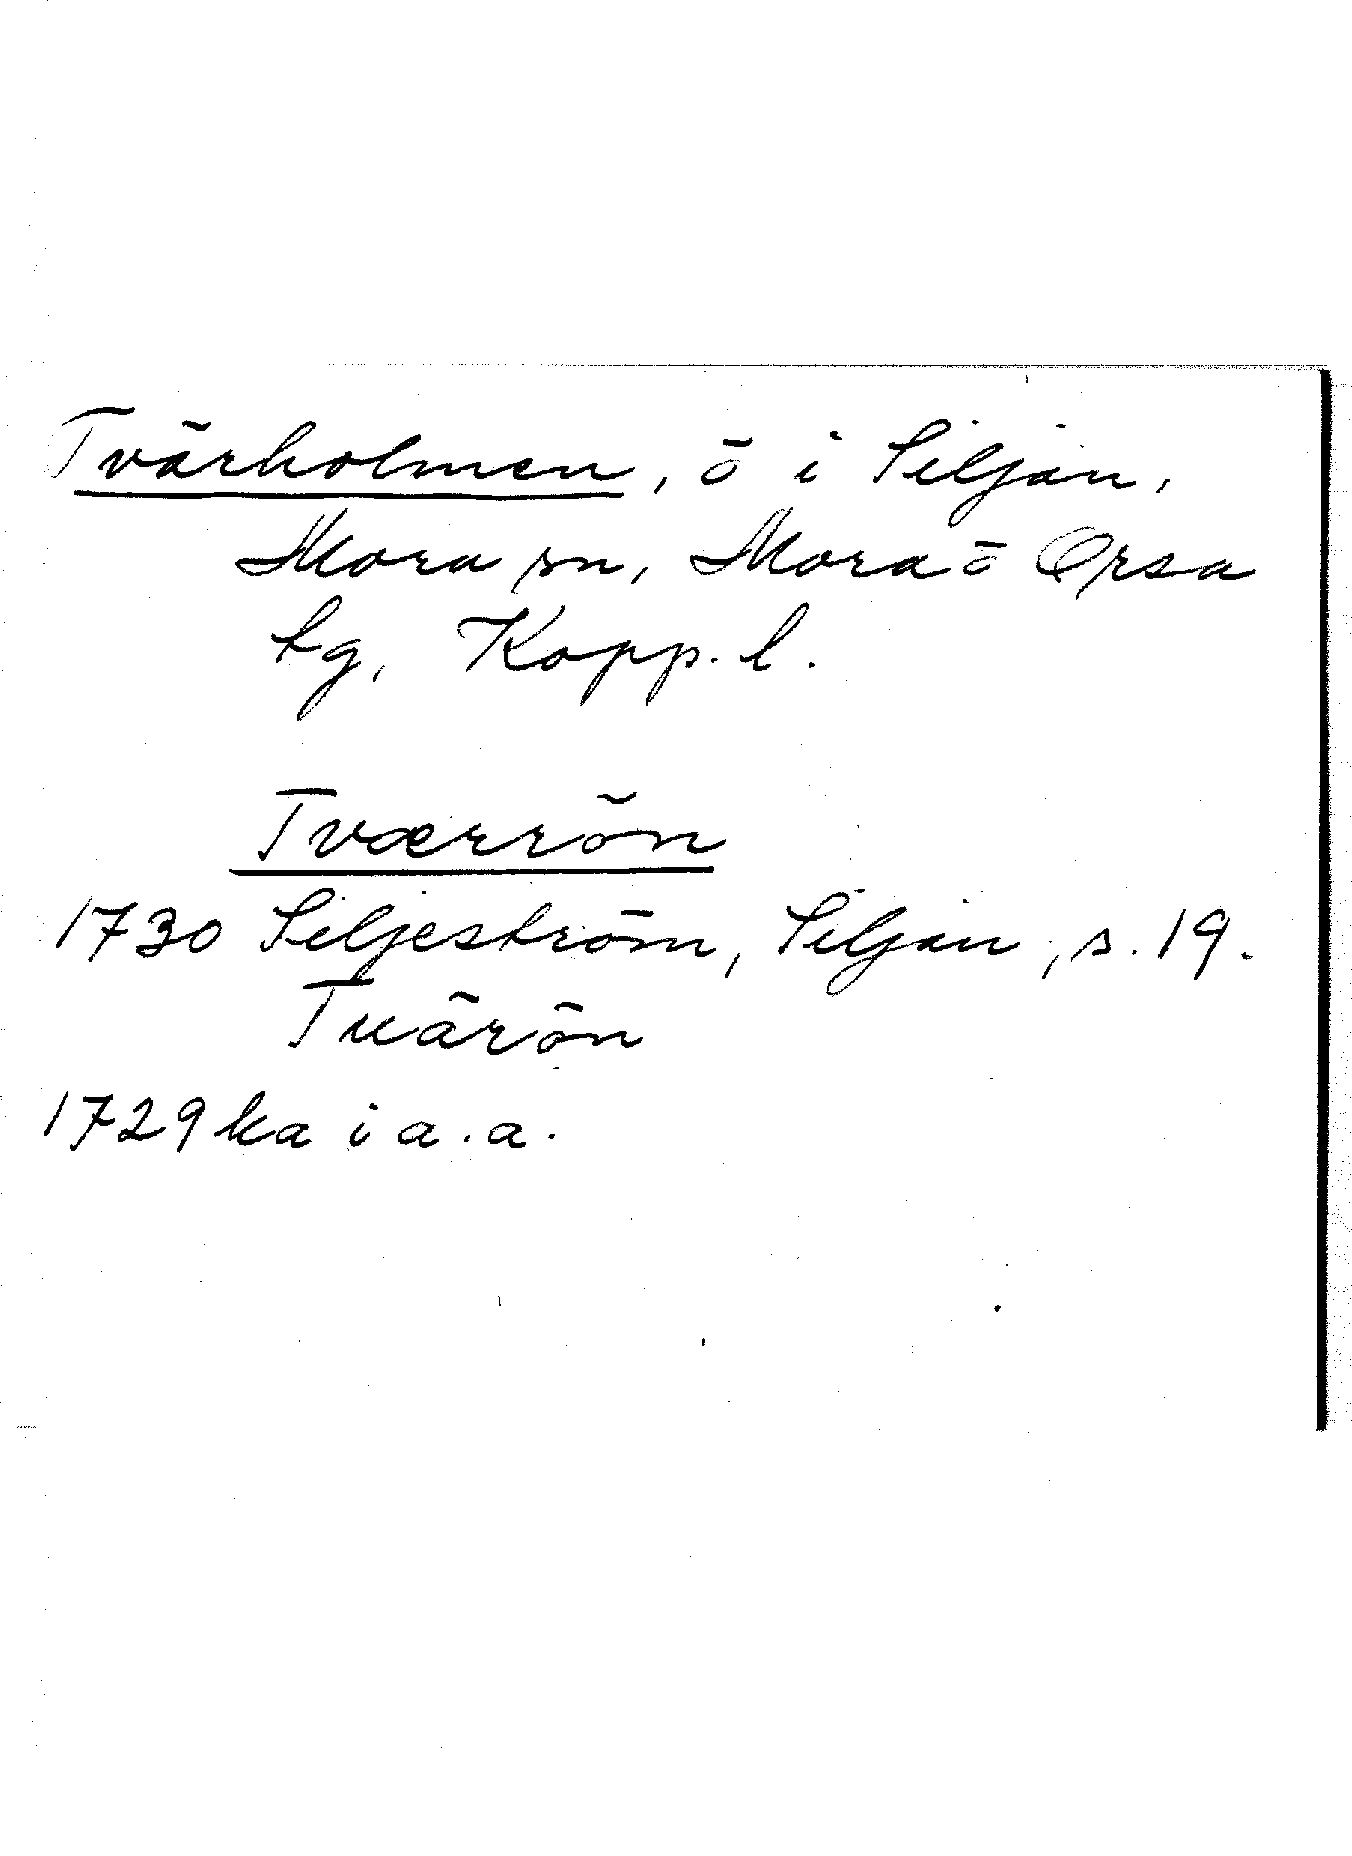 Tvärholmen, ö i Siljan,
Mora sn, Mora ö Orsa
tg, Kopp. l.
Tværrön
1730 Siljeström, Siljan, s. 19.
Tuärön
1729 ka i a. a.